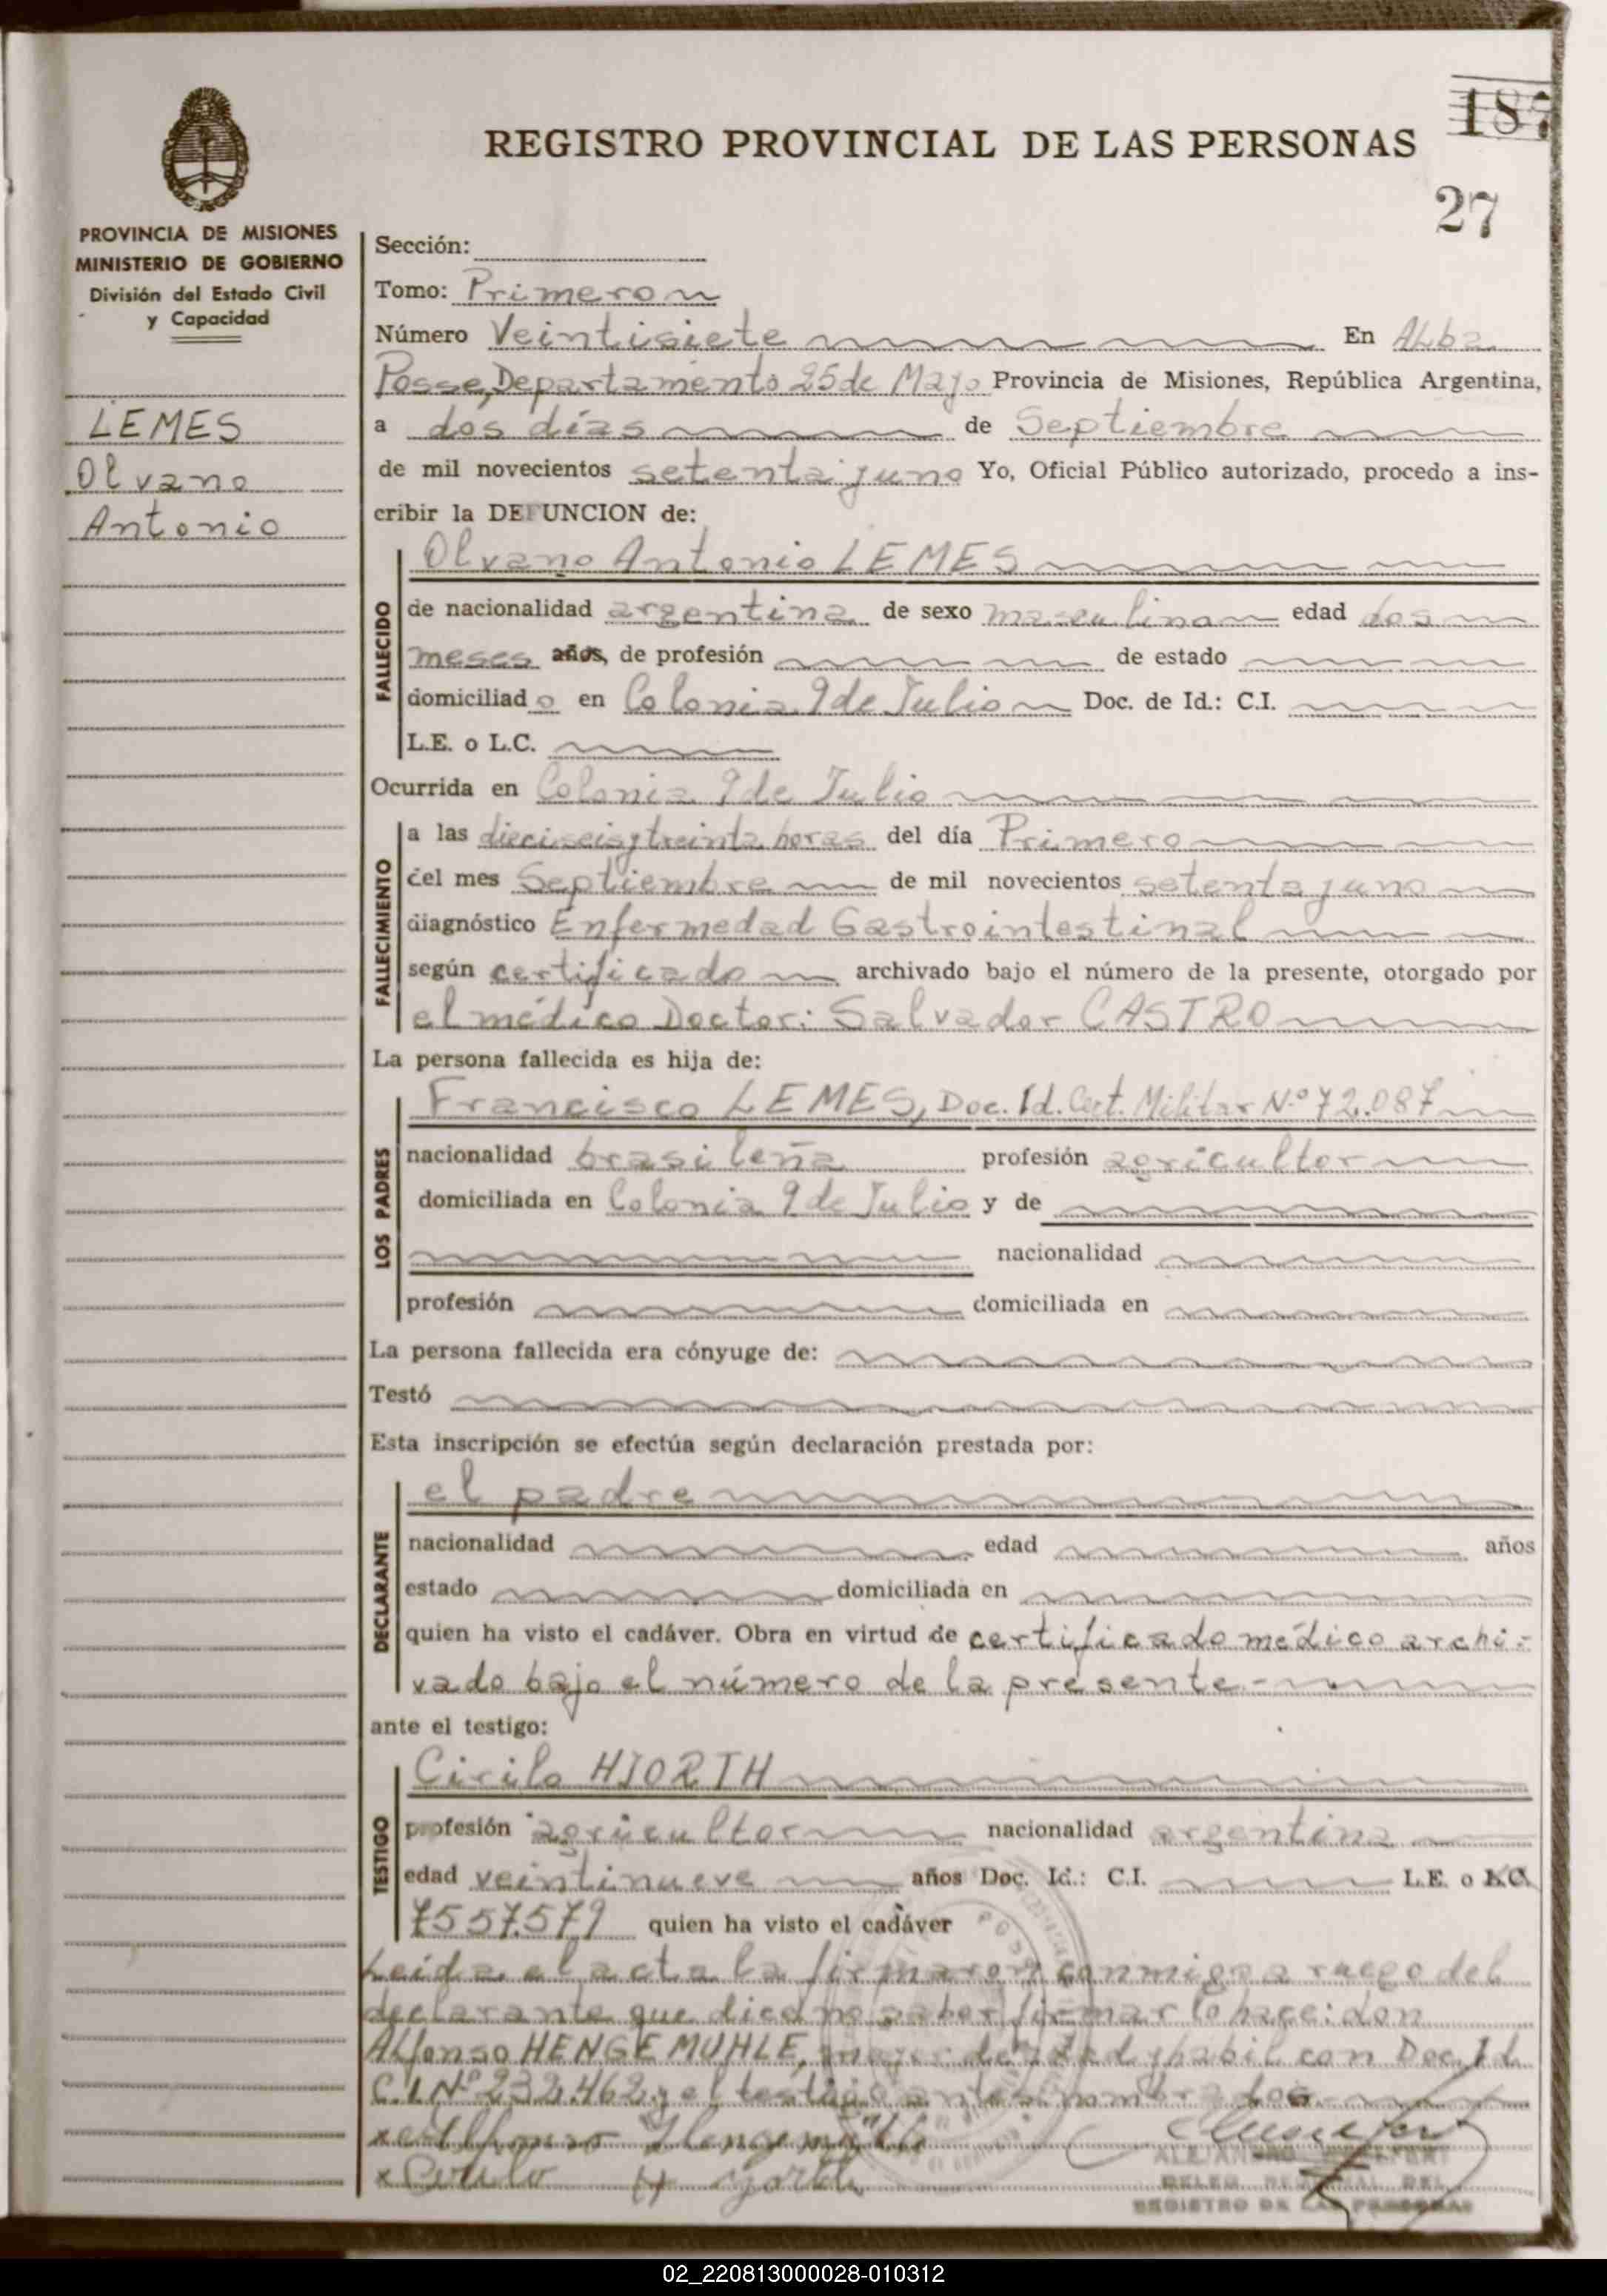 187
REGISTRO PROVINCIAL DE LAS PERSONAS
27
PROVINCIA DE MISIONES
MINISTERIO DE GOBIERNO
División del Estado Civil
y Capacidad
LEMES
Olvano
Antonio
Sección:
Tomo: Primero
Número Veintisiete En Alba
Posse, Departamento 25 de Mayo Provincia de Misiones, República Argentina,
a dos días de Septiembre
de mil novecientos setenta y uno Yo, Oficial Público autorizado, procedo a ins-
cribir la DEFUNCION de:
FALLECIDO
Olvano Antonio LEMES
de nacionalidad argentina de sexo masculino edad dos
meses años, de profesión de estado
domiciliad o en Colonia 9 de Julio Doc. de Id.: C.I.
L.E. o L.C.
Ocurrida en Colonia 9 de Julio
FALLECIMIENTO
a las dieciseis y treinta horas del día Primero
del mes Septiembre de mil novecientos setenta y uno
diagnóstico Enfermedad Gastrointestinal
según certificado archivado bajo el número de la presente, otorgado por
el médico Doctor: Salvador CASTRO
La persona fallecida es hija de:
LOS PADRES
Francisco LEMES, Doc. Id. Cert. Militar Nº 72.087
nacionalidad brasileña profesión agricultor
domiciliada en Colonia 9 de Julio y de
nacionalidad
profesión domiciliada en
La persona fallecida era cónyuge de:
Testó
Esta inscripción se efectúa según declaración prestada por:
DECLARANTE
el padre
nacionalidad edad años
estado domiciliada en
quien ha visto el cadáver. Obra en virtud de certificado médico archi-
vado bajo el número de la presente.-
ante el testigo:
TESTIGO
Cirilo HJORTH
profesión agricultor nacionalidad argentina
edad veintinueve años Doc. Id.: C.I. L.E. o L.C.
7557.579 quien ha visto el cadáver
Leida el acta la firmaron conmigo a ruego del
declarante que dice no saber firmar lo hace: don
Alfonso HENGEMUHLE, mayor de edad y habil con Doc. Id.
C.I. Nº 232.462 y el testigo antes nombrado.-
x Alfonso Hengemühle
x Cirilo Hjorth
REGISTRO DE LAS PERSONAS
02_220813000028-010312